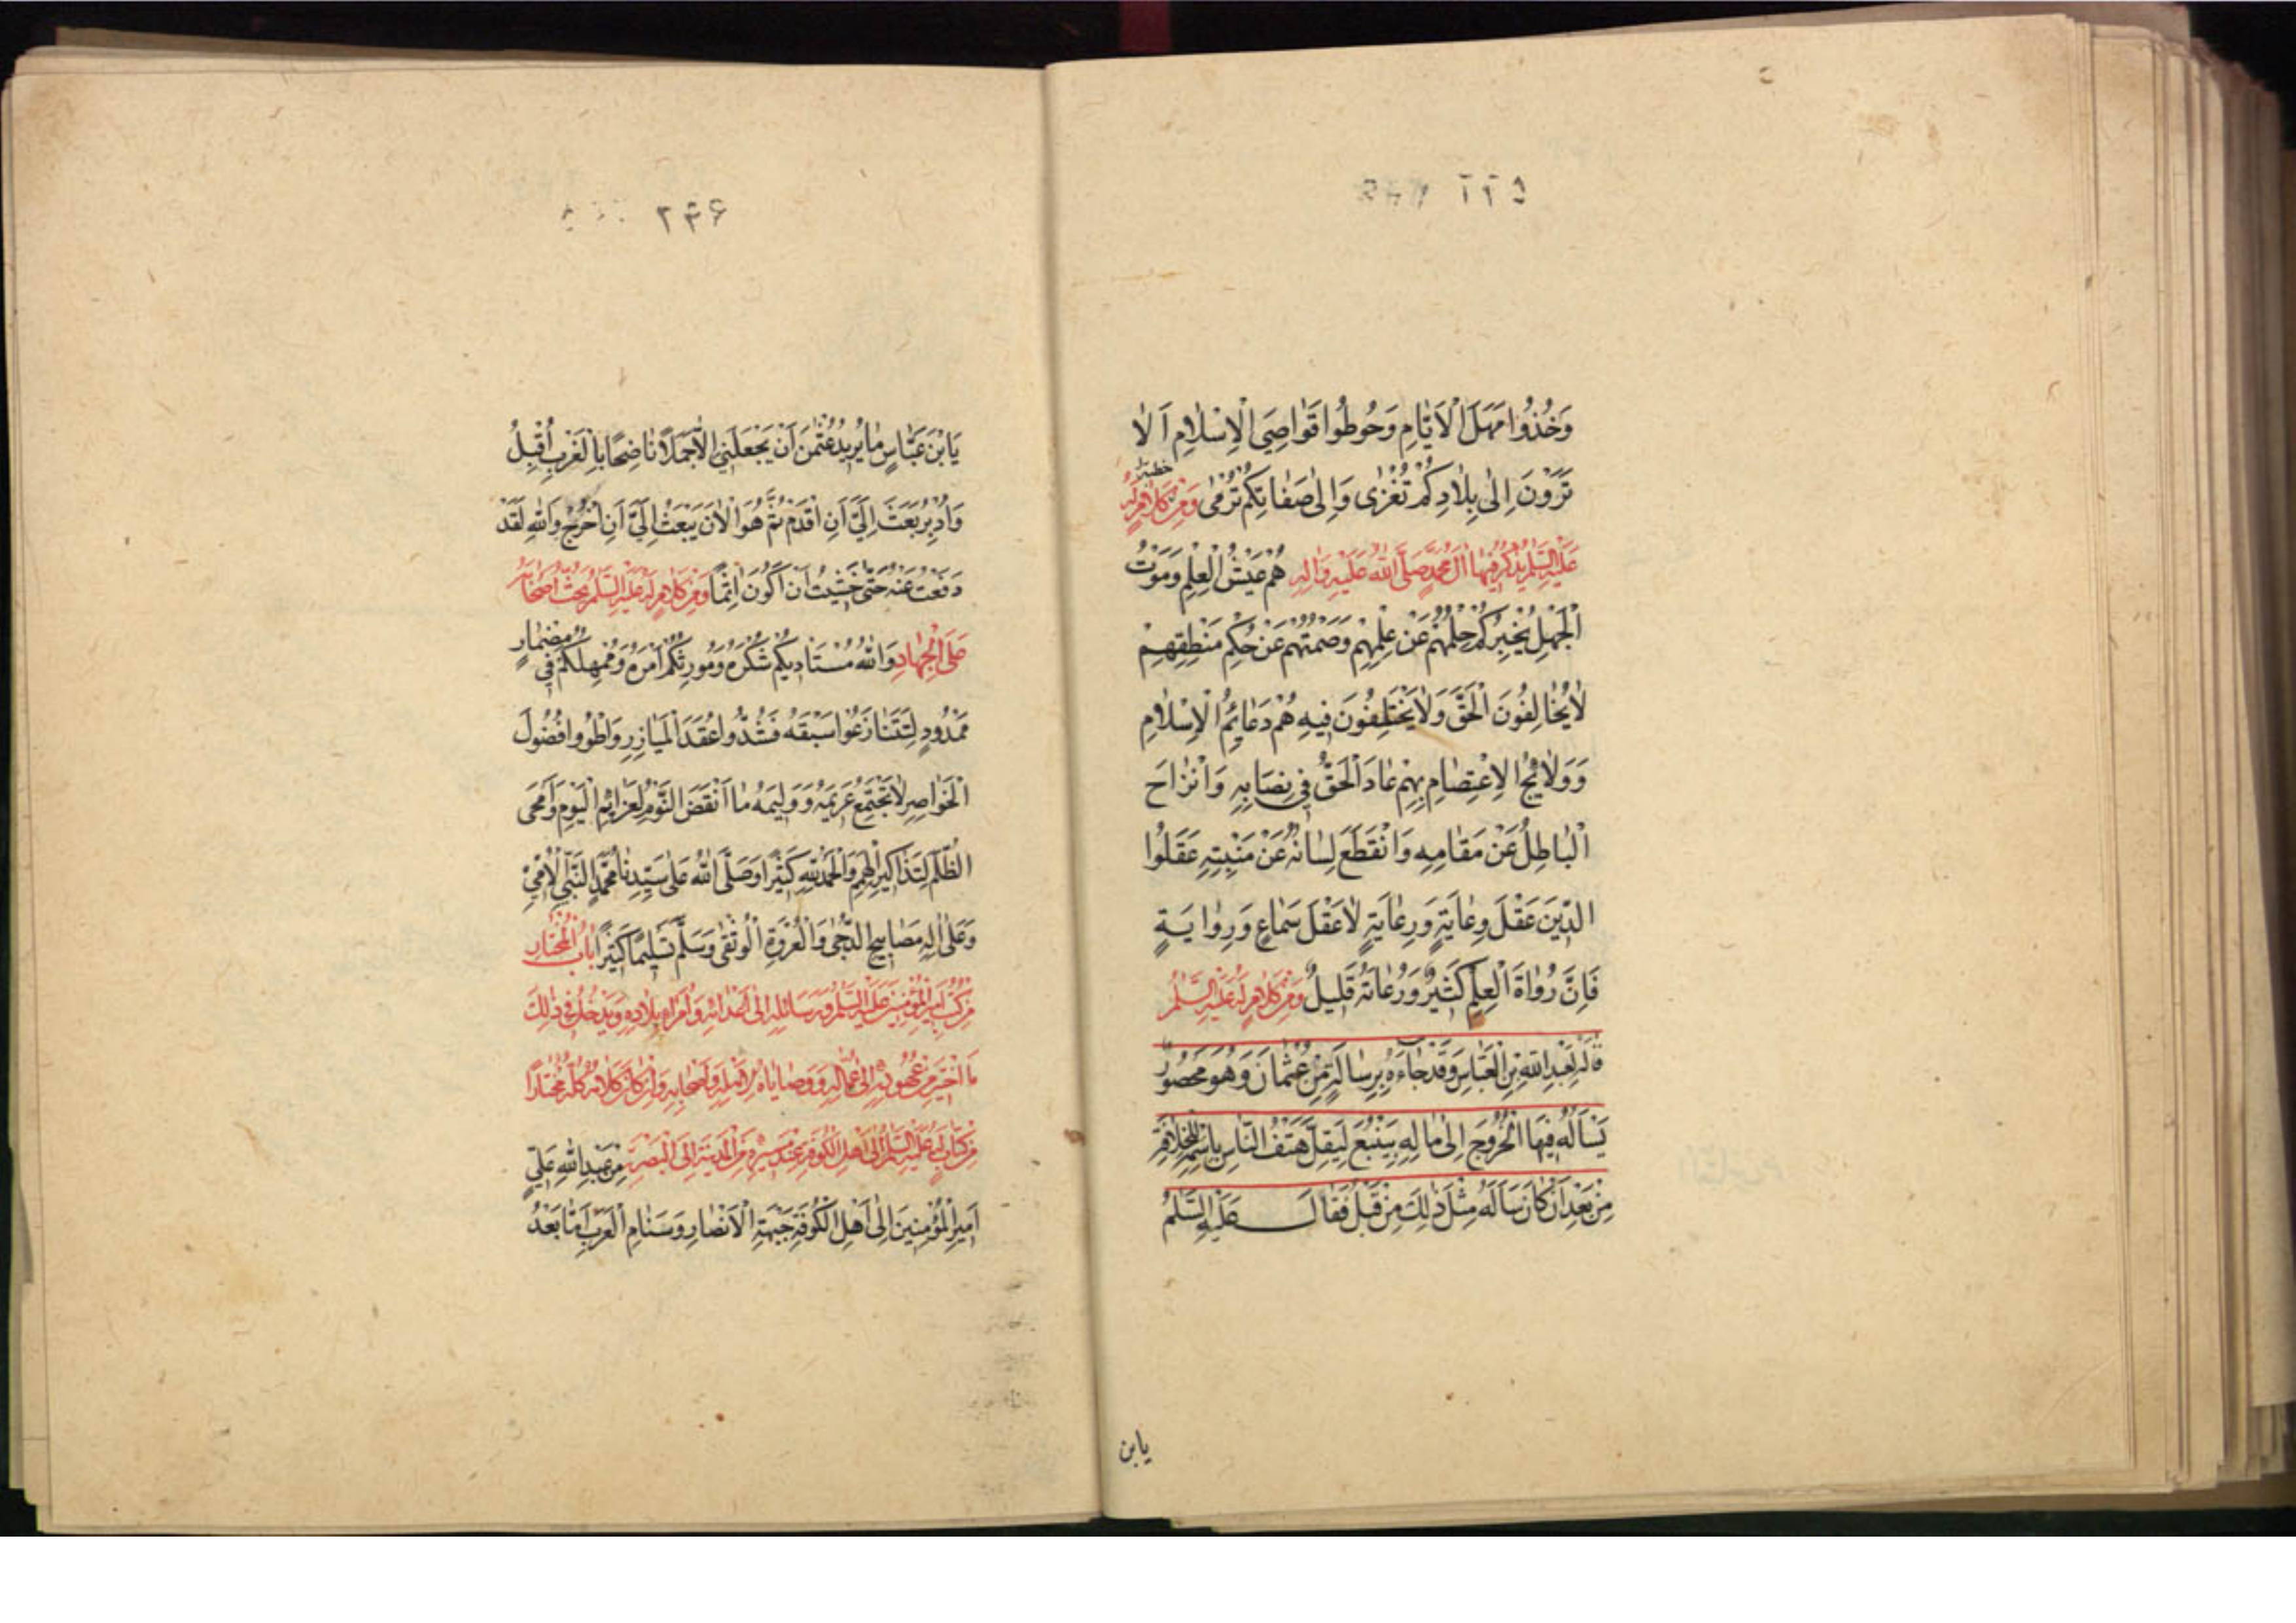 وَخُذُوا مَهَلَ الْأَيَّامِ وَحُوطُوا قَوَاصِيَ الْإِسْلَامِ أَلَا
تَرَوْنَ إِلَى بِلَادِكُمْ تُغْزَى وَإِلَى صَفَاتِكُمْ تُرْمَى وَمِنْ كَلَامٍ لَهُ
خطبة
عَلَيْهِ السَّلَمُ يَذْكُرُ فِيهَا آلَ مُحَمَّدٍ صَلَّى اللهُ عَلَيْهِ وَآلِهِ هُمْ عَيْشُ الْعِلْمِ وَمَوْتُ
الْجَهْلِ يُخْبِرُكُمْ حِلْمُهُمْ عَنْ عِلْمِهِمْ وَصَمْتُهُمْ عَنْ حُكْمِ مَنْطِقِهِمْ
لَا يُخَالِفُونَ الْحَقَّ وَلَا يَخْتَلِفُونَ فِيهِ هُمْ دَعَائِمُ الْإِسْلَامِ
وَوَلَائِجُ الْاِعْتِصَامِ بِهِمْ عَادَ الْحَقُّ فِي نِصَابِهِ وَانْزَاحَ
الْبَاطِلُ عَنْ مَقَامِهِ وَانْقَطَعَ لِسَانُهُ عَنْ مَنْبِتِهِ عَقَلُوا
الدِّينَ عَقْلَ وِعَايَةٍ وَرِعَايَةٍ لَا عَقْلَ سَمَاعٍ وَرِوَايَةٍ
فَإِنَّ رُوَاةَ الْعِلْمِ كَثِيرٌ وَرُعَاتَهُ قَلِيلٌ وَمِنْ كَلَامٍ لَهُ عَلَيْهِ السَّلَمُ
قَالَهُ لِعَبْدِ اللهِ بْنِ الْعَبَّاسِ وَقَدْ جَاءَهُ بِرِسَالَةٍ مِنْ عُثْمَانَ وَهُوَ مَحْصُورٌ
يَسْأَلُهُ فِيهَا الْخُرُوجَ إِلَى مَالِهِ بِيَنْبُعَ لِيَقِلَّ هَتْفُ النَّاسِ بِاسْمِهِ لِلْخِلَافَةِ
مِنْ بَعْدِ أَنْ كَانَ سَأَلَهُ مِثْلَ ذَلِكَ مِنْ قَبْلُ فَقَالَ عَلَيْهِ السَّلَمُ
يابن
۲۴۶
يَابْنَ عَبَّاسٍ مَا يُرِيدُ عُثْمَنُ أَنْ يَجْعَلَنِي إِلَّا جَمَلًا نَاضِحًا بِالْغَرْبِ أَقْبِلْ
وَأَدْبِرْ بَعَثَ إِلَيَّ أَنْ أَقْدَمَ ثُمَّ هُوَ الْآنَ يَبْعَثُ إِلَيَّ أَنْ أَخْرُجَ وَاللهِ لَقَدْ
دَفَعْتُ عَنْهُ حَتَّى خَشِيتُ أَنْ أَكُونَ آثِمًا وَمِنْ كَلَامٍ لَهُ عَلَيْهِ السَّلَمُ يَحُثُّ أَصْحَابَهُ
عَلَى الْجِهَادِ وَاللهُ مُسْتَأْدِيكُمْ شُكْرَهُ وَمُورِثُكُمْ أَمْرَهُ وَمُمْهِلُكُمْ فِي مِضْمَارٍ
مَمْدُودٍ لِتَتَنَازَعُوا سَبَقَهُ فَشُدُّوا عُقَدَ الْمَيَازِرِ وَاطْوُوا فُضُولَ
الْخَوَاصِرِ لَا تَجْتَمِعُ عَزِيمَةٌ وَوَلِيمَةٌ مَا أَنْقَضَ النَّوْمَ لِعَزَائِمِ الْيَوْمِ وَأَمْحَى
الظُّلَمَ لِتَذَاكِيرِ الْهِمَمِ وَالْحَمْدُ لِلّهِ كَثِيرًا وَصَلَّى اللهُ عَلَى سَيِّدِنَا مُحَمَّدٍ النَّبِيِّ الْأُمِّيِّ
وَعَلَى آلِهِ مَصَابِيحِ الدُّجَى وَالْعُرْوَةِ الْوُثْقَى وَسَلَّمَ تَسْلِيمًا كَثِيرًا بَابُ الْمُخْتَارِ
مِنْ كُتُبِ أَمِيرِ الْمُؤْمِنِينَ عَلَيْهِ السَّلَمُ وَرَسَائِلِهِ إِلَى أَعْدَائِهِ وَأُمَرَاءِ بِلَادِهِ وَيَدْخُلُ فِي ذَلِكَ
مَا اخْتِيرَ مِنْ عُهُودِهِ إِلَى عُمَّالِهِ وَوَصَايَاهُ لِأَهْلِهِ وَأَصْحَابِهِ وَإِنْ كَانَ كَلَامُهُ كُلُّهُ مُخْتَارًا
مِنْ كِتَابٍ لَهُ عَلَيْهِ السَّلَمُ إِلَى أَهْلِ الْكُوفَةِ عِنْدَ مَسِيرِهِ مِنَ الْمَدِينَةِ إِلَى الْبَصْرَةِ مِنْ عَبْدِ اللهِ عَلِيٍّ
أَمِيرِ الْمُؤْمِنِينَ إِلَى أَهْلِ الْكُوفَةِ جَبْهَةِ الْأَنْصَارِ وَسَنَامِ الْعَرَبِ أَمَّا بَعْدُ